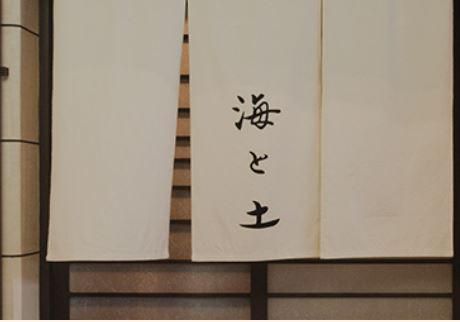 海と土